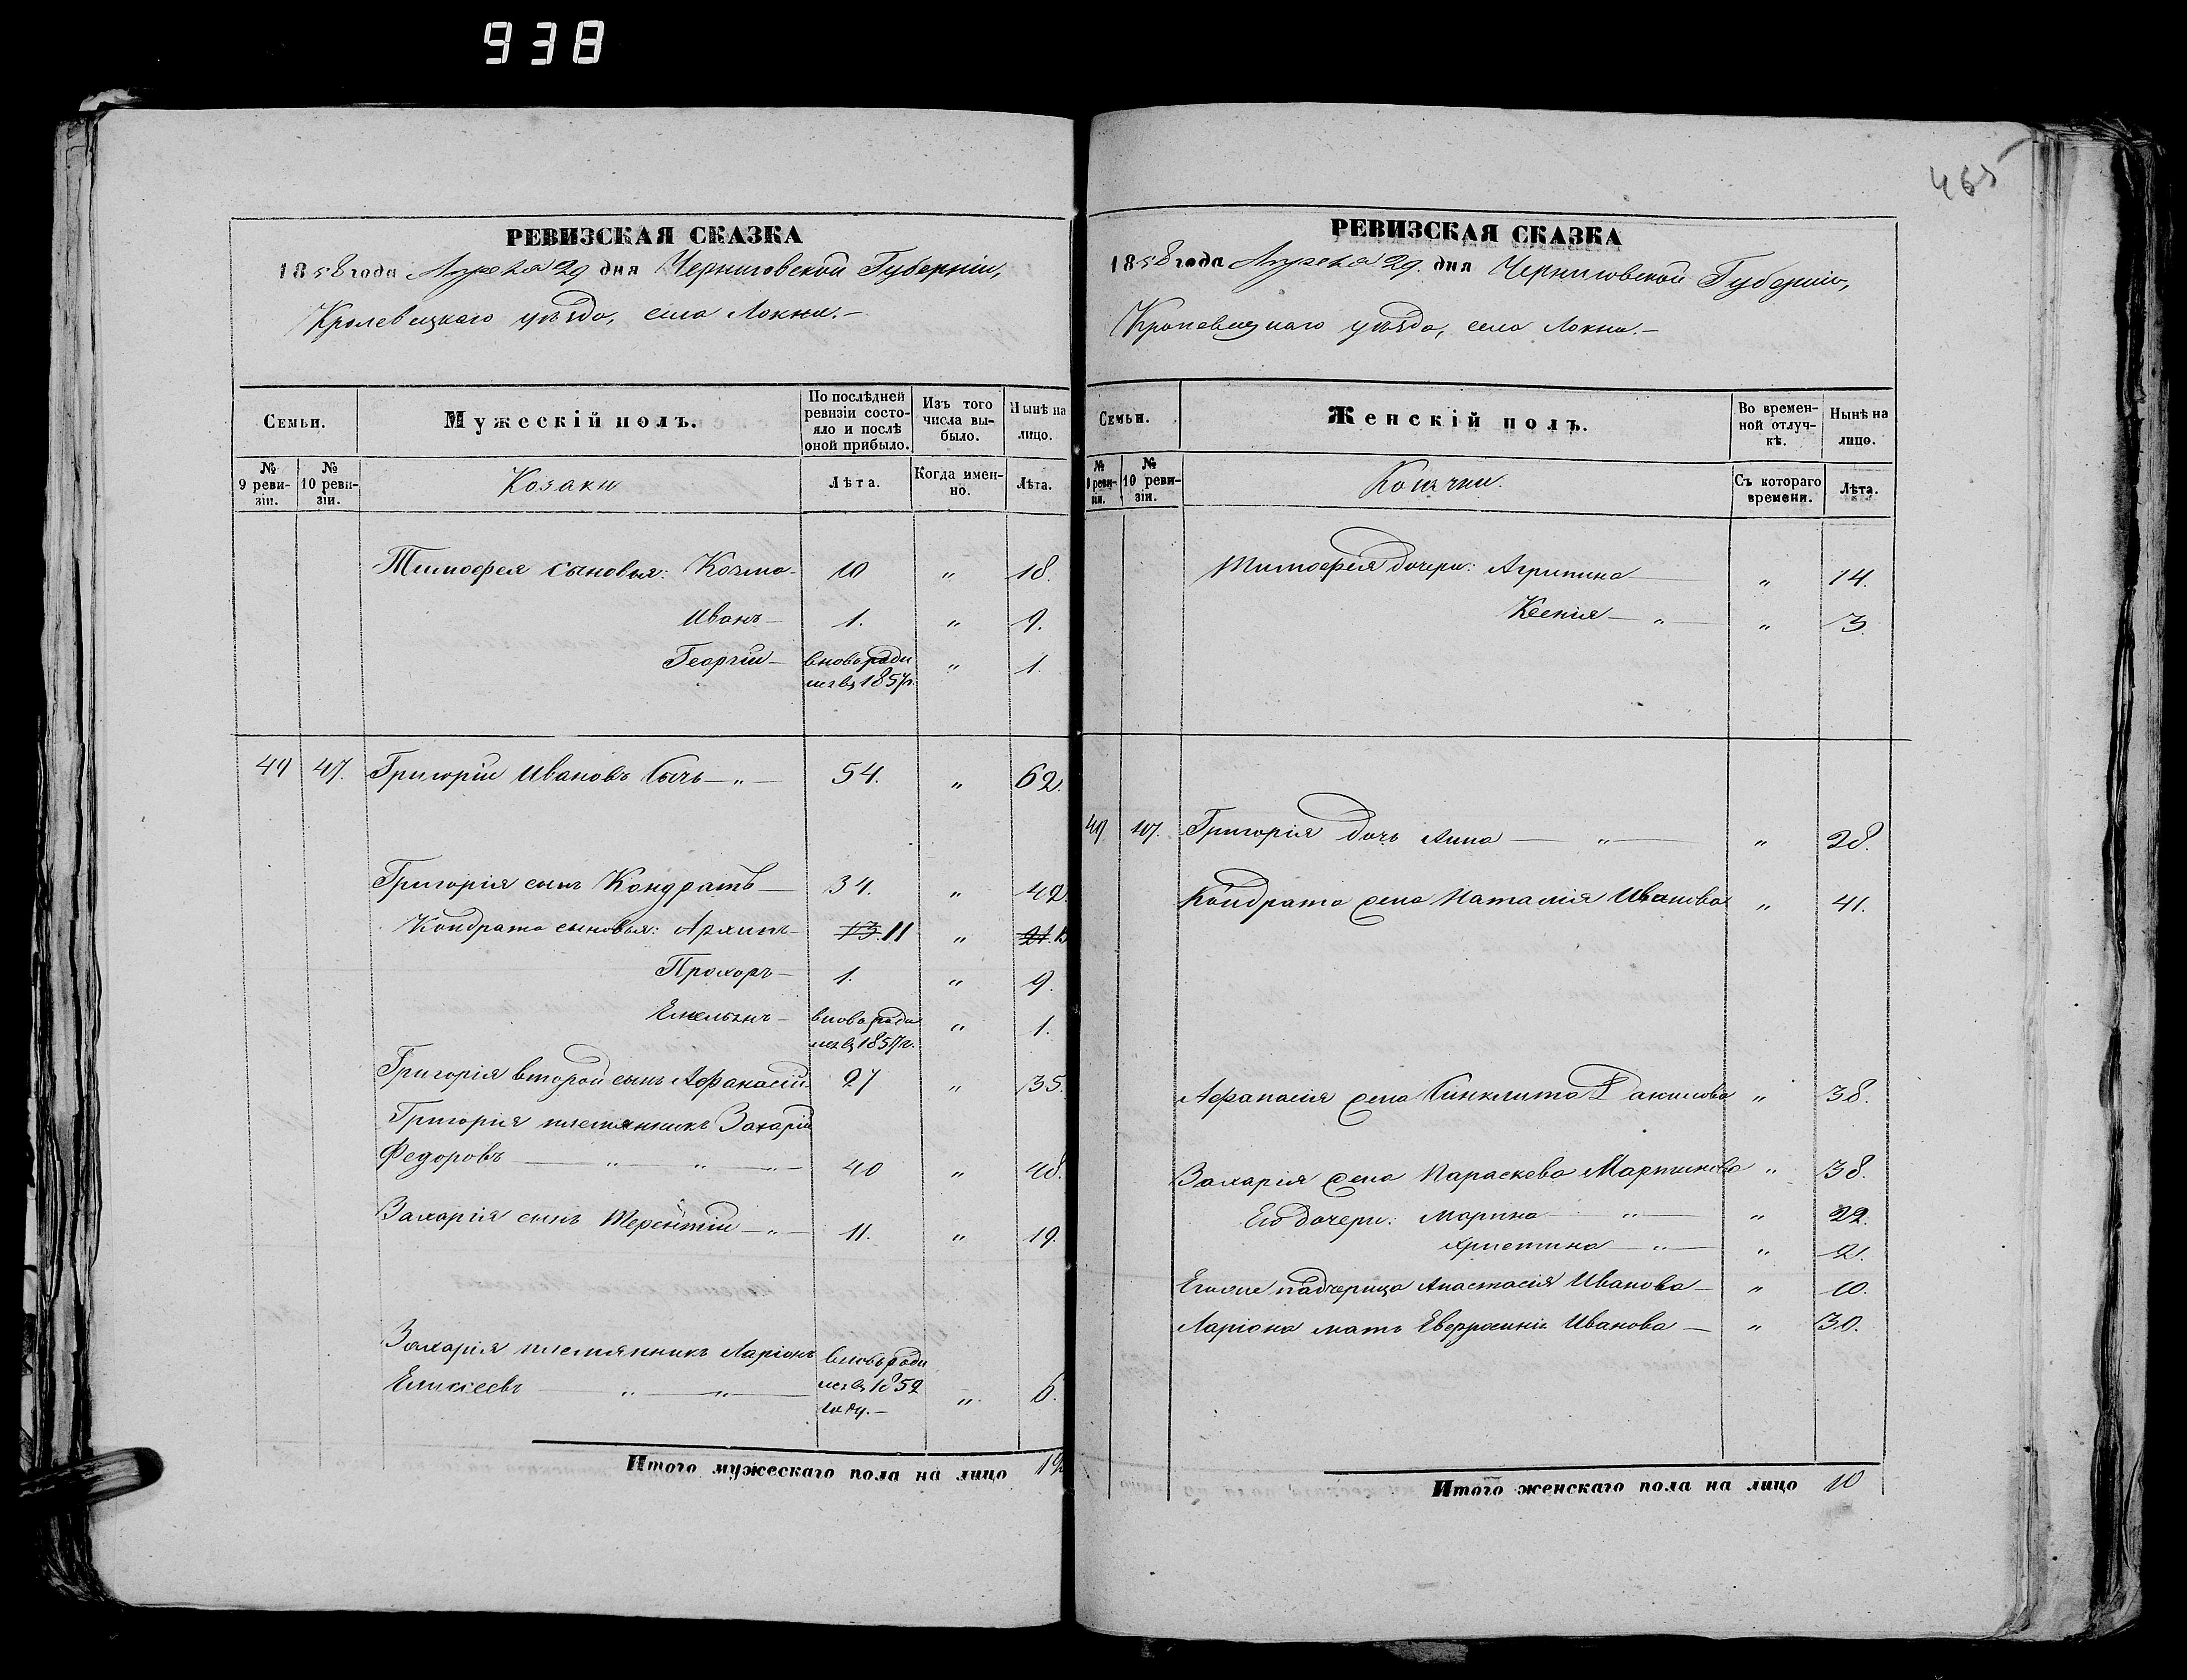 938
465
РЕВИЗСКАЯ СКАЗКА
1858 года Апреля 29 дня Черниговской Губерніи,
Кролевецкаго уѣзда, села Локни.—
Семьи.
Мужескій полъ.
По послѣдней ревизіи состояло и послѣ оной прибыло.
Изъ того числа выбыло.
Нынѣ на лицо.
№ 9 ревизіи.
№ 10 ревизіи.
Козаки
Лѣта.
Когда именно.
Лѣта.
Тимофея сыновья: Козма— 10 " 18.
Иванъ— 1. " 9.
Георгій— вновь роди " 1.
лся въ 1857 г.
49 47. Григорій Ивановъ Сычъ—"— 54. " 62.
Григорія сынъ Кондратъ— 34. " 42.
Кондрата сыновья: Архипъ— 13. 11 " 21.
Прохоръ— 1. " 9.
Емельянъ— вновь роди " 1.
лся въ 1857 г.
Григорія второй сынъ Афанасій 27 " 35.
Григорія племянникъ Захарій
Федоровъ — " — " — " — 40 " 48.
Захарія сынъ Терентій —"— 11. " 19.
Захарія племянникъ Ларіонъ вновь роди
Елисеевъ — " — " — лся въ 1852 " 6.
году.—
Итого мужескаго пола на лицо 12
РЕВИЗСКАЯ СКАЗКА
1858 года Апреля 29. дня Черниговской Губерніи,
Кролевецкаго уѣзда, села Локни.—
Семьи.
Женскій полъ.
Во временной отлучкѣ.
Нынѣ на лицо.
№ 9 ревизіи.
№ 10 ревизіи.
Козачки.
Съ котораго времени.
Лѣта.
Тимофея дочери: Агрипина— " 14.
Ксенія — " — " 3.
49 47. Григорія дочь Анна — " — " 28.
Кондрата жена Наталія Иванова " 41.
Афанасія жена Синклита Данилова " 38.
Захарія жена Параскева Мартинова " 38.
Его дочери: Марина — " — " 22.
Христина — " — " 21.
Его же падчерица Анастасія Иванова— " 10.
Ларіона мать Евфросинія Иванова — " 30.
Итого женскаго пола на лицо 10